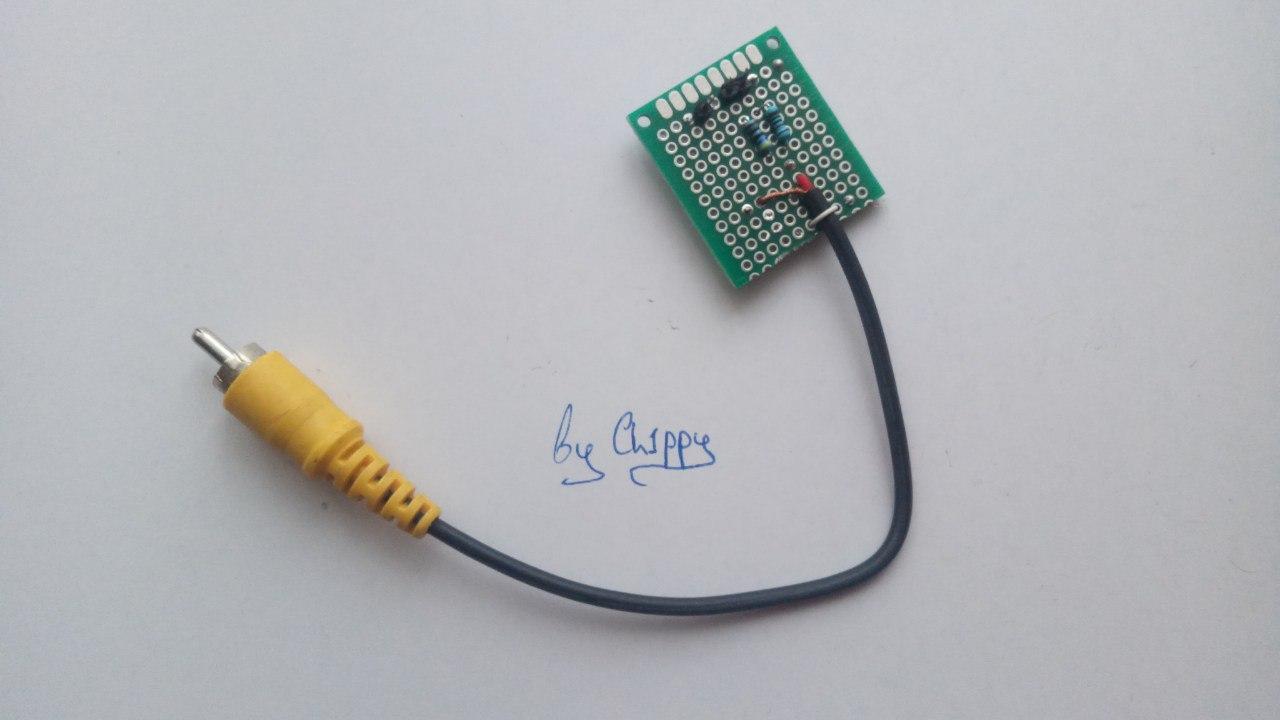 by Chippy